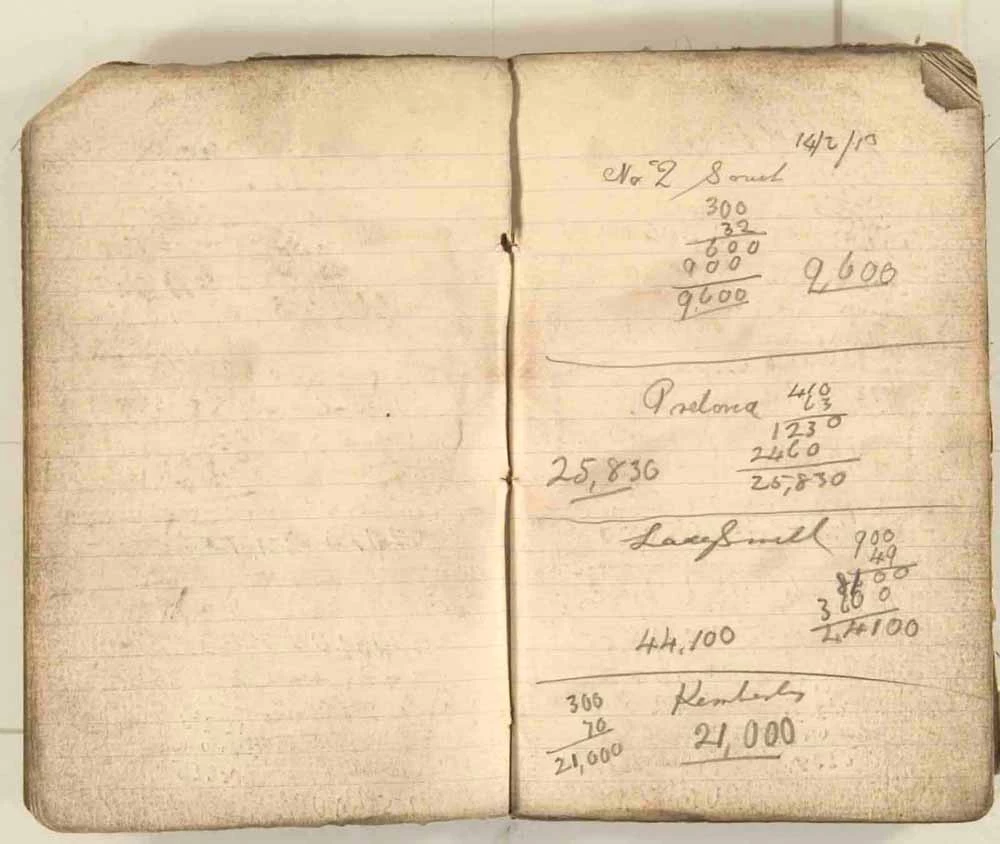 14/2/13
No 2 South
300
32
600
900
9,600 9,600
Pretoria 410
63
1230
2460
25,830 25,830
LadySmith 900
49
8100
3600
44,100 44100
300 Kemberley
70
21,000 21,000